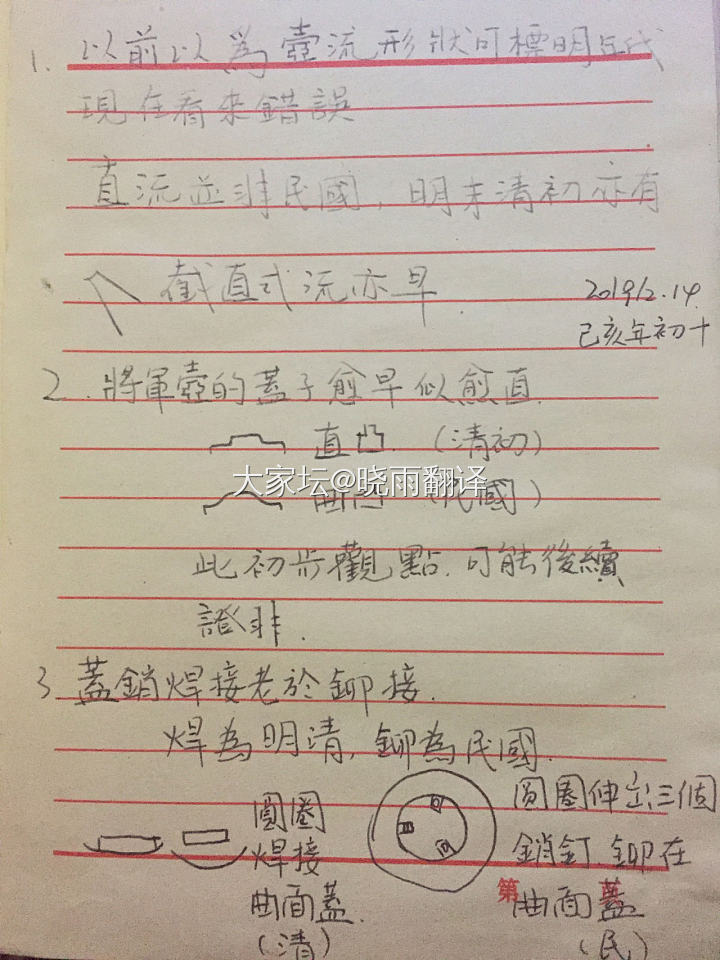 1. 以前以為壺流形狀可標明年代
現在看來錯誤
直流並非民國，明末清初亦有
截直式流亦早
2019/2.14
己亥年初十
2.將軍壺的蓋子愈早似愈直.
直凸.（清初）
曲凸（民國）
大家坛@晓雨翻译
此初步觀點.可能後續
證非.
3.蓋銷焊接老於鉚接.
焊為明清,鉚為民國.
圓圈
焊接
曲面蓋.
（清）
圓圈伸出三個
銷釘.鉚在
曲面蓋
（民）
第